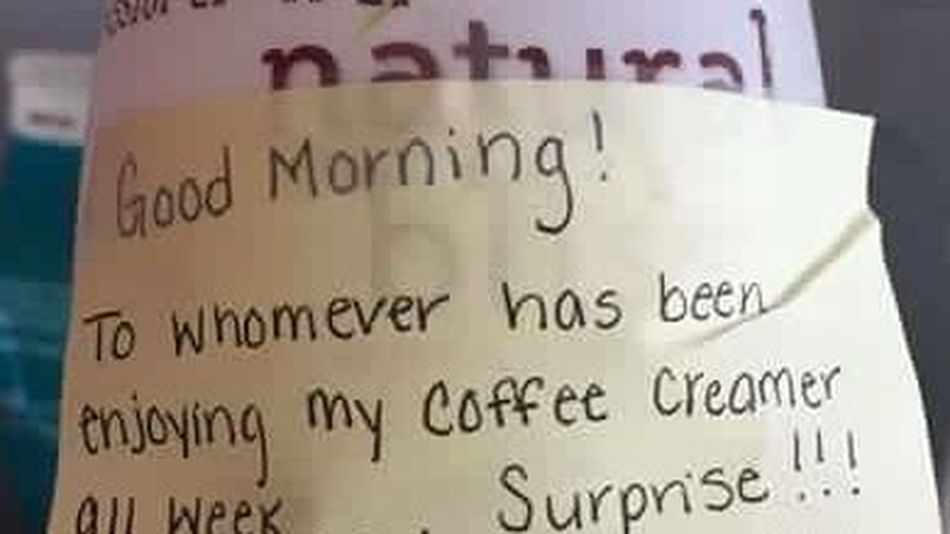 natural
Good Morning!
To whomever has been
enjoying my coffee creamer
all week . Surprise!!!